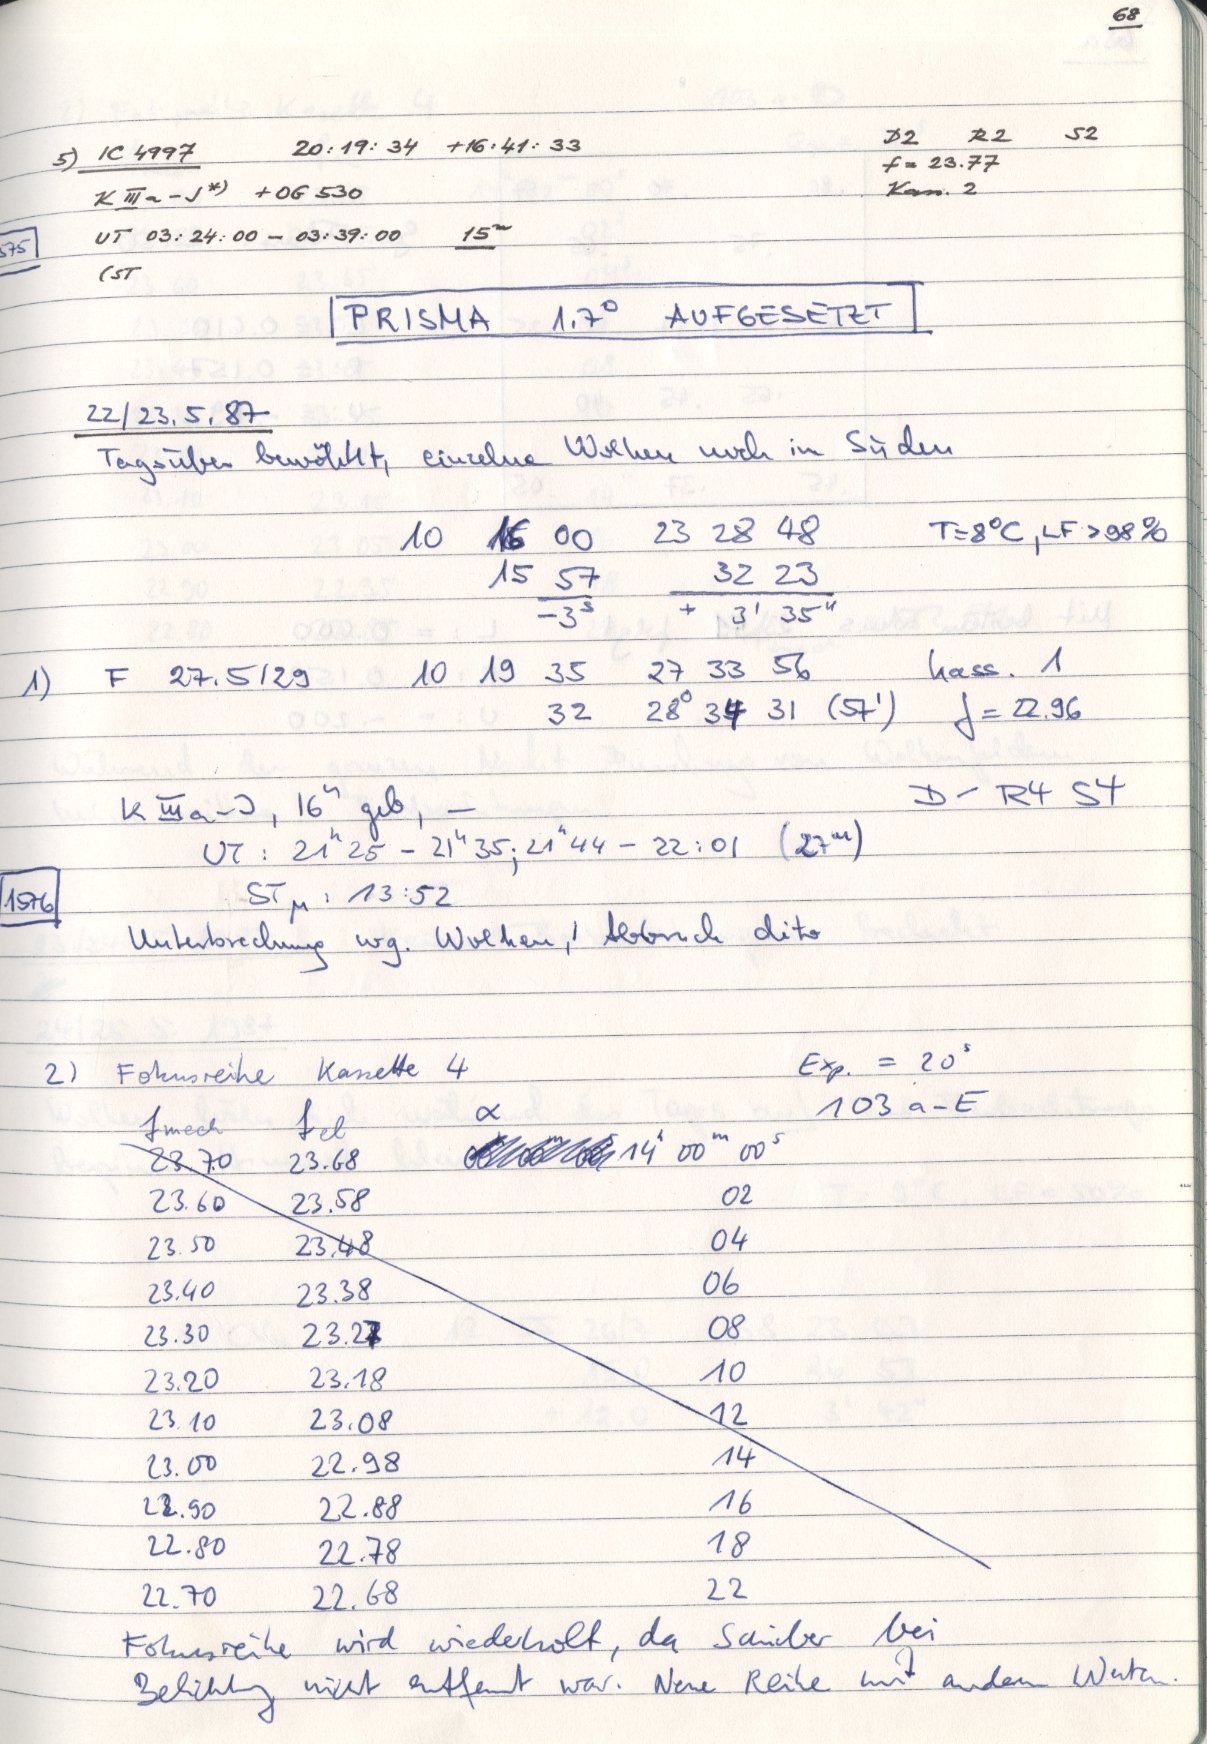 68
5) IC 4997 20:19:34 +16:41:33 D2 R2 S2
f = 23.77
K IIIa-J *) + OG 530 Kass. 2
575 UT 03:24:00 - 03:39:00 15m
(ST
PRISMA 1.7° AUFGESETZT
22/23.5.87
Tagsüber bewölkt, einzelne Wolken noch im Süden
10 16 00 23 28 48 T=8°C, LF >98%
15 57 32 23
-3s + 3' 35"
1) F 27.5/29 10 19 35 27 33 56 Kass. 1
32 28° 34 31 (57') f = 22.96
K IIIa-J, 16h geb, — D- R4 S4
UT: 21h25 - 21h35; 21h44 - 22:01 (27m)
1576 STM: 13:52
Unterbrechung wg. Wolken, Abbruch dito
2) Fokusreihe Kassette 4 Exp. = 20s
103 a-E
fmech fel α
23.70 23.68 14h 00m 00s
23.60 23.58 02
23.50 23.48 04
23.40 23.38 06
23.30 23.27 08
23.20 23.18 10
23.10 23.08 12
23.00 22.98 14
22.90 22.88 16
22.80 22.78 18
22.70 22.68 22
Fokusreihe wird wiederholt, da Schieber bei
Belichtung nicht entfernt war. Neue Reihe mit andern Werten.